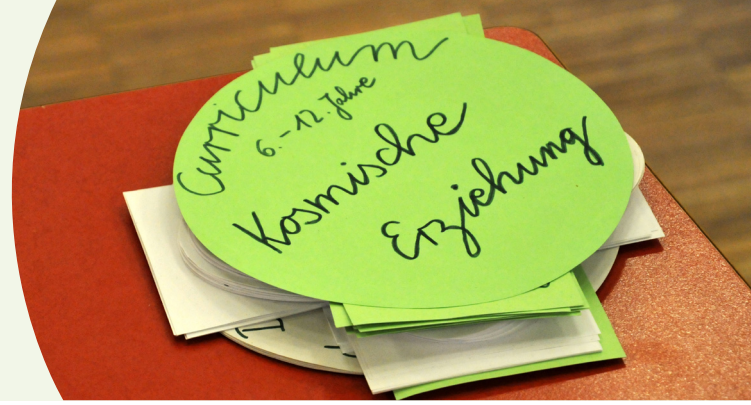 Curriculum
6.-12. Jahre
Kosmische
Erziehung